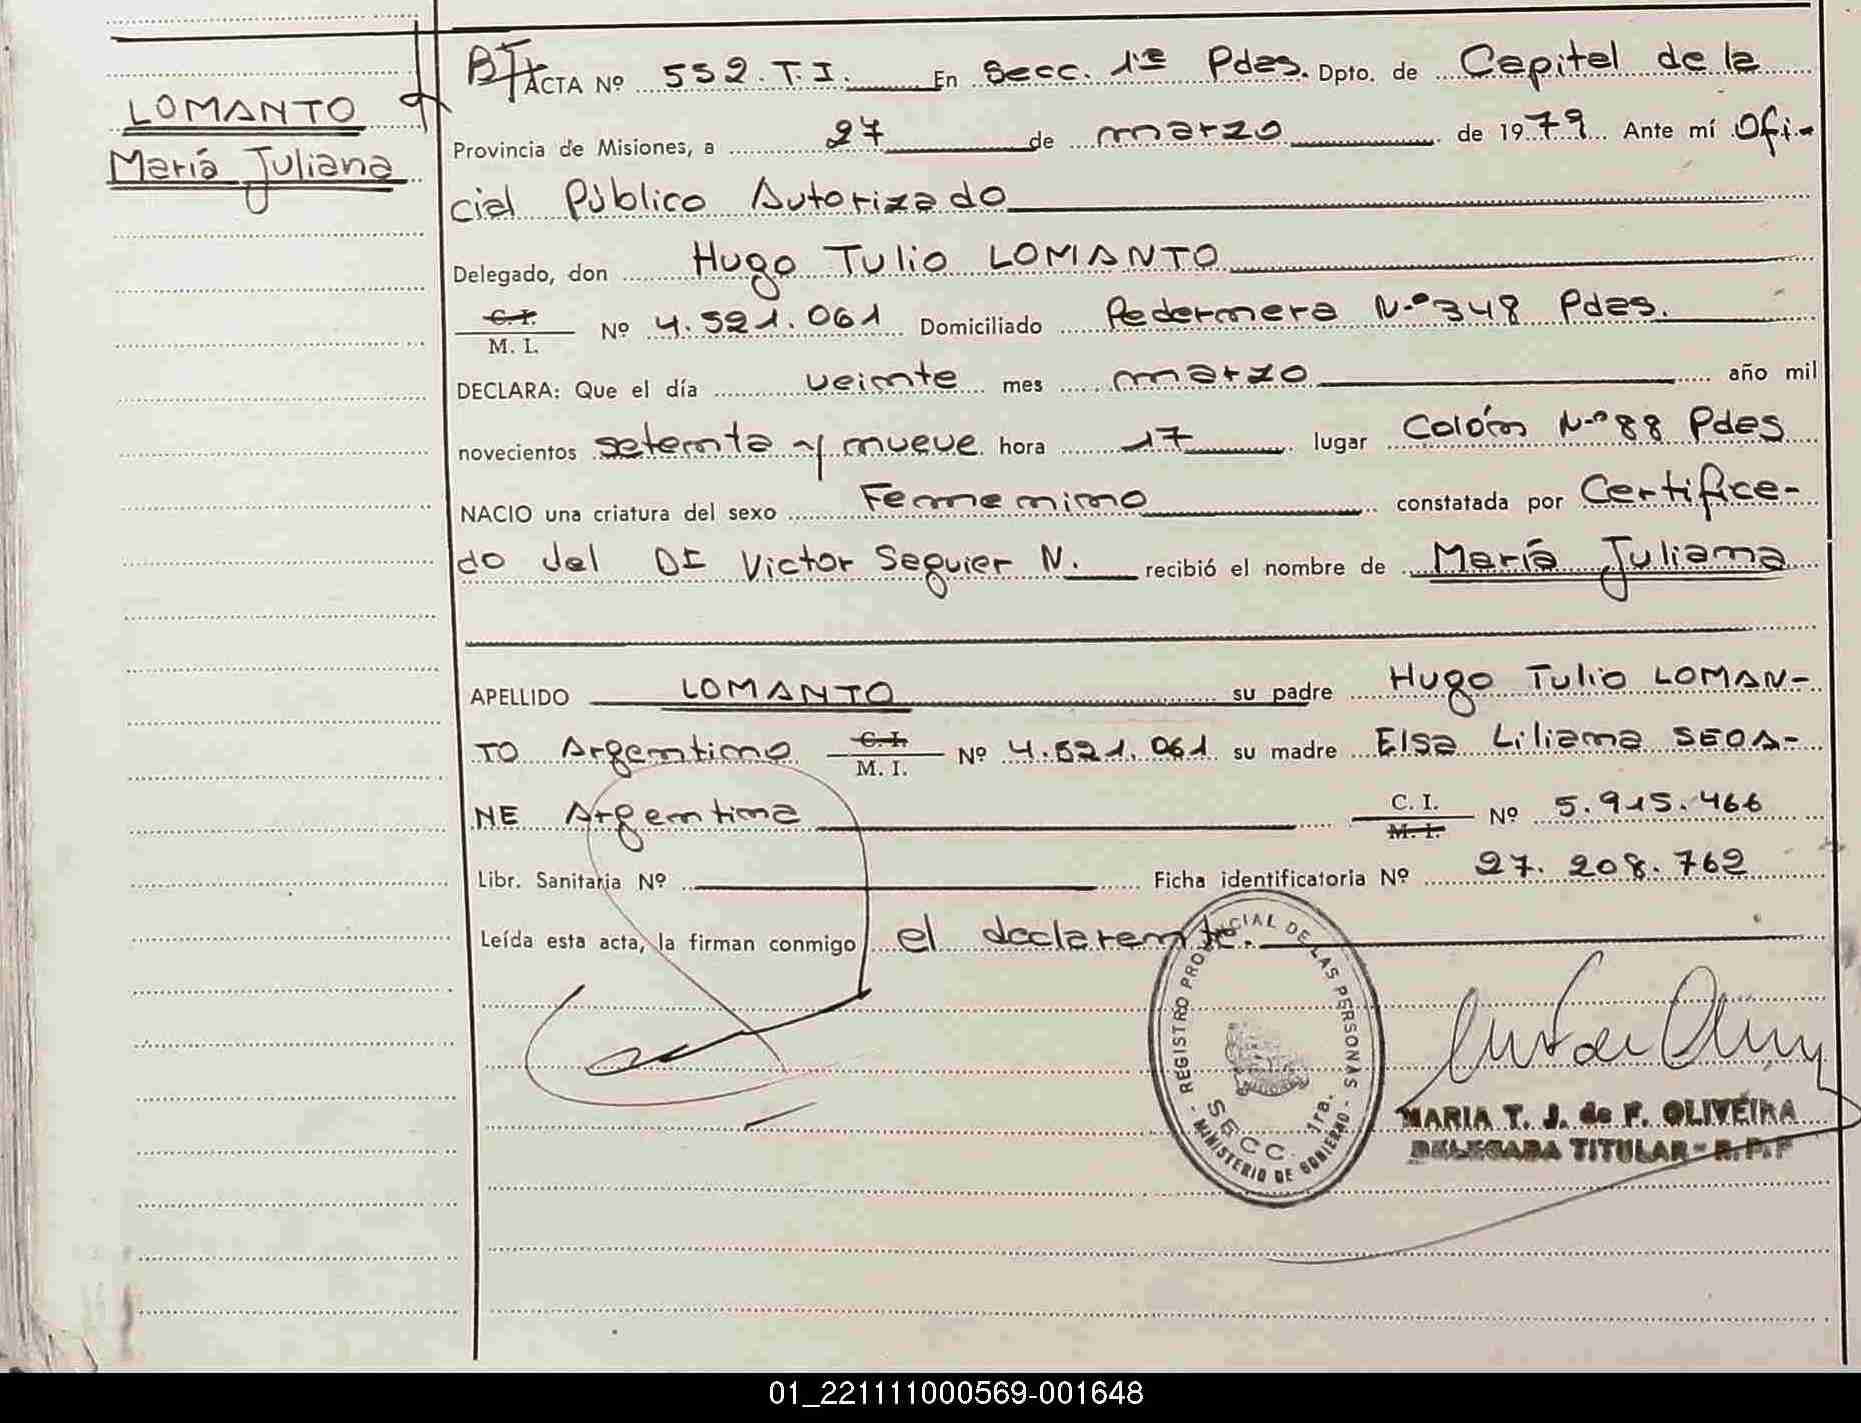 LOMANTO
María Juliana
ACTA Nº 552. T. I. En Secc. 1ª Pdas. Dpto. de Capital de la
Provincia de Misiones, a 27 de marzo de 1979 Ante mí Ofi-
cial Público Autorizado
Delegado, don Hugo Tulio LOMANTO
C. I.
M. I. Nº 4.521.061 Domiciliado Pedernera Nº 348 Pdas.
DECLARA: Que el día veinte mes marzo año mil
novecientos setenta y nueve hora 17 lugar Colón Nº 88 Pdas
NACIO una criatura del sexo Femenino constatada por Certifica-
do del Dr Victor Seguier N. recibió el nombre de María Juliana
APELLIDO LOMANTO su padre Hugo Tulio LOMAN-
TO Argentino C. I.
M. I. Nº 4.521.061 su madre Elsa Liliana SEOA-
NE Argentina C. I.
M. I. Nº 5.915.466
Libr. Sanitaria Nº Ficha identificatoria Nº 27. 208. 762
Leída esta acta, la firman conmigo el declarante.
- REGISTRO PROVINCIAL DE LAS PERSONAS -
SECC. 1ra.
MINISTERIO DE GOBIERNO
MARIA T. J. de F. OLIVEIRA
DELEGADA TITULAR - R. P. P
01_221111000569-001648